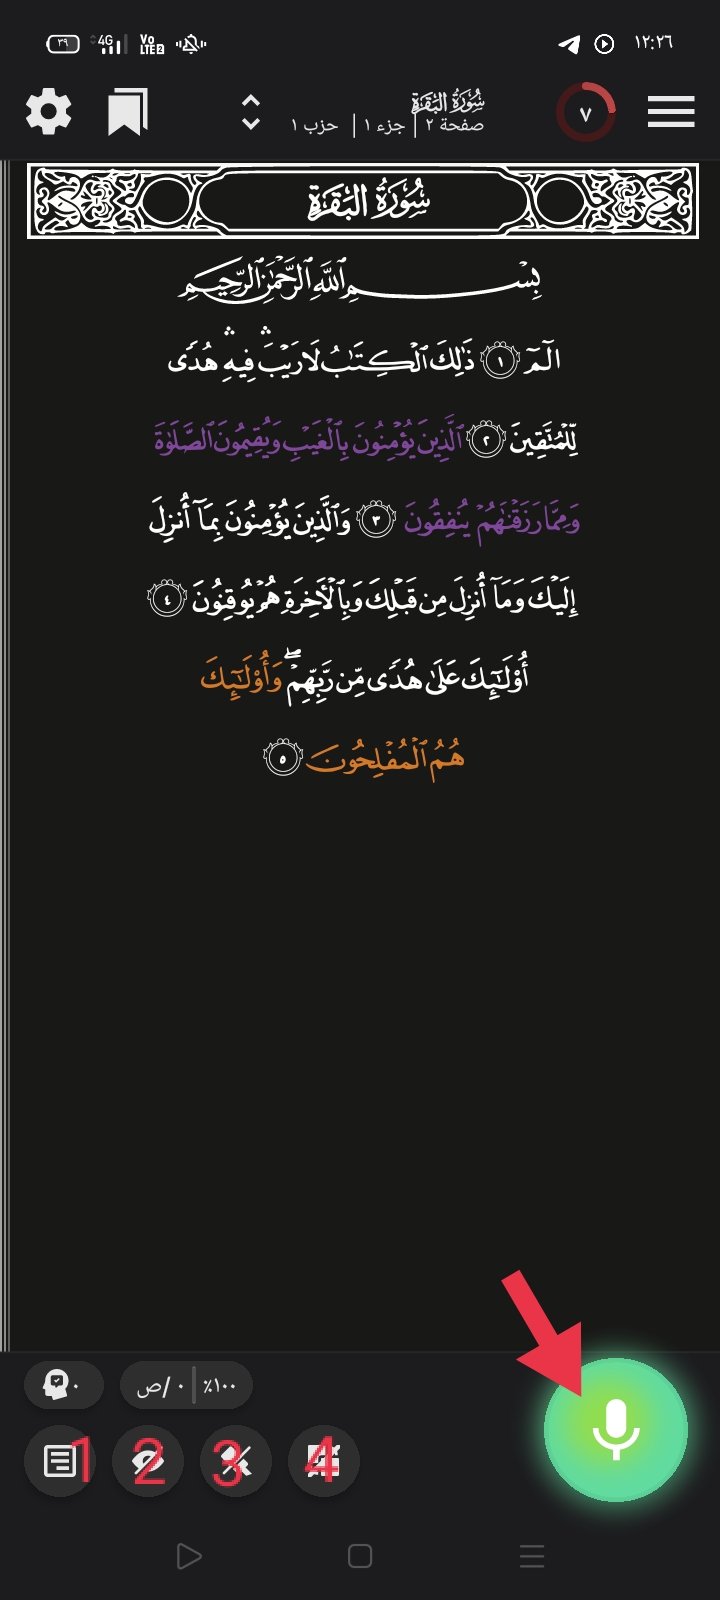 ١٢:٢٦
٣٩
4G
Vo LTE 2
٧
سُورَةُ البَقَرَةِ
صفحة ٢ | جزء ١ | حزب ١
سُورَةُ البَقَرَةِ
بِسْمِ ٱللَّهِ ٱلرَّحْمَٰنِ ٱلرَّحِيمِ
الٓمٓ ١ ذَٰلِكَ ٱلْكِتَٰبُ لَا رَيْبَ ۛ فِيهِ ۛ هُدًى
لِّلْمُتَّقِينَ ٢ ٱلَّذِينَ يُؤْمِنُونَ بِٱلْغَيْبِ وَيُقِيمُونَ ٱلصَّلَوٰةَ
وَمِمَّا رَزَقْنَٰهُمْ يُنفِقُونَ ٣ وَٱلَّذِينَ يُؤْمِنُونَ بِمَآ أُنزِلَ
إِلَيْكَ وَمَآ أُنزِلَ مِن قَبْلِكَ وَبِٱلْأَخِرَةِ هُمْ يُوقِنُونَ ٤
أُو۟لَٰٓئِكَ عَلَىٰ هُدًى مِّن رَّبِّهِمْ ۖ وَأُو۟لَٰٓئِكَ
هُمُ ٱلْمُفْلِحُونَ ٥
٠
١٠٠٪ | ٠ /ص
1 2 3 4